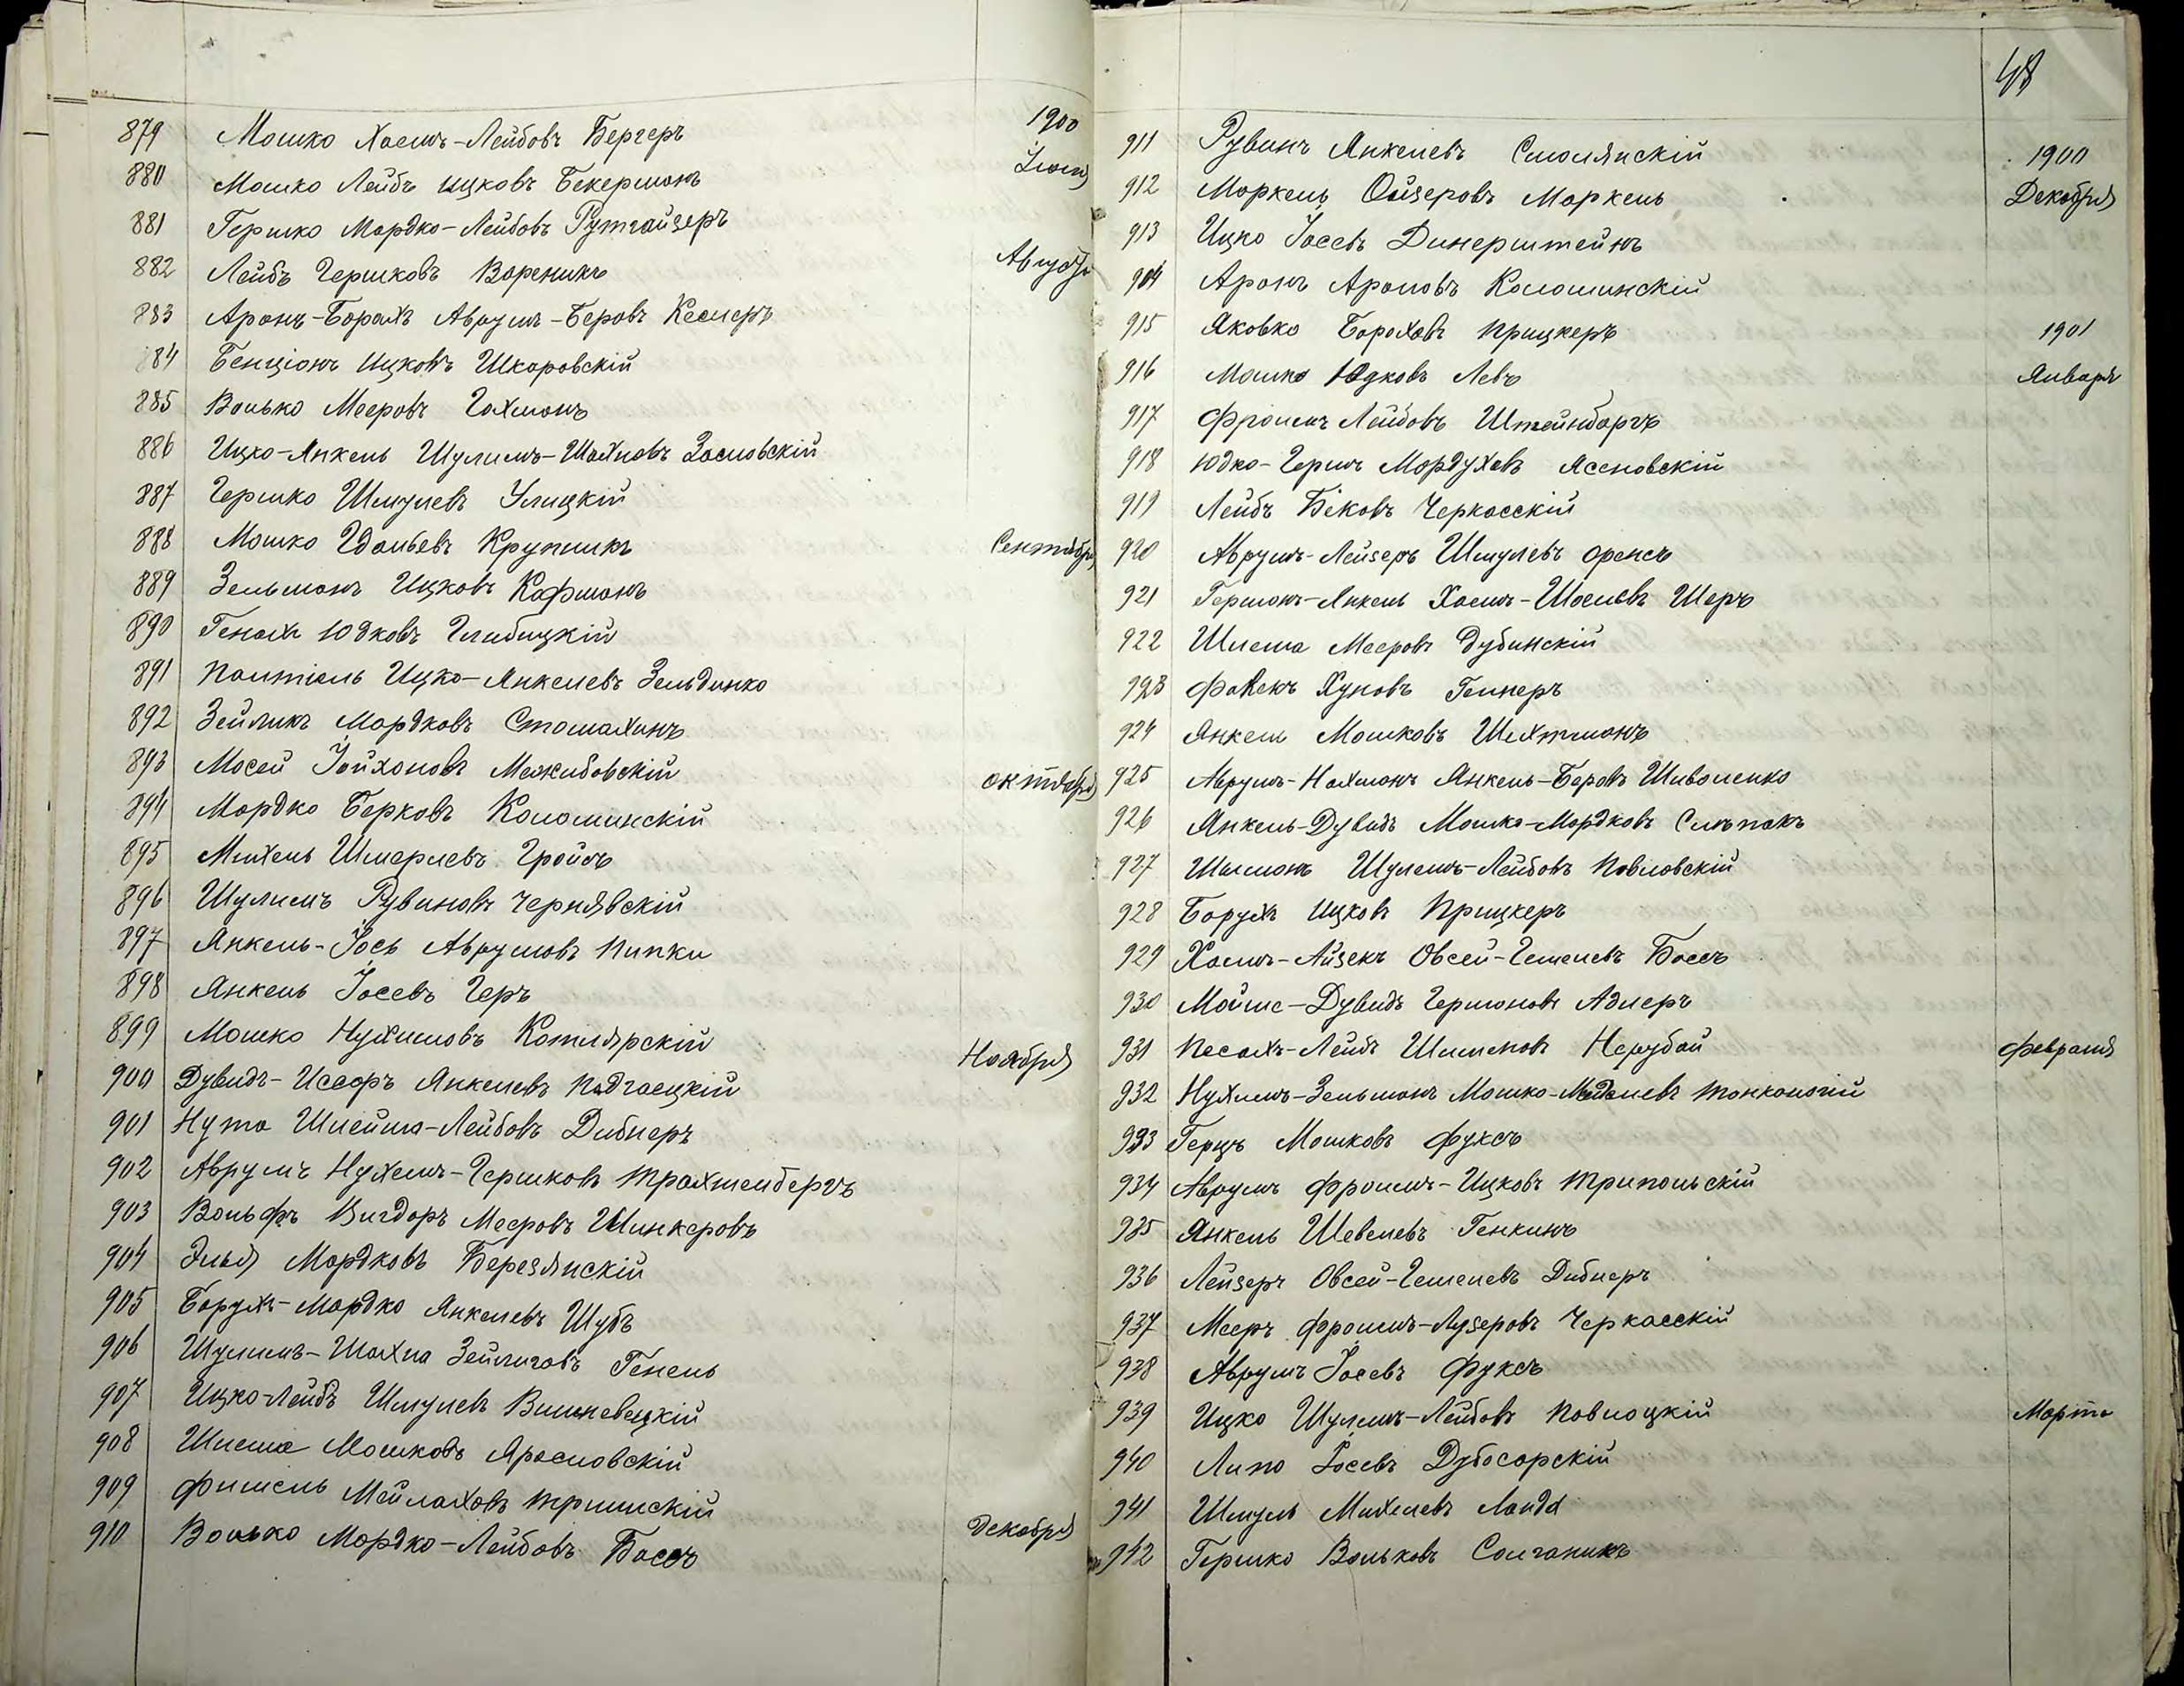 1900
879 Мошко Хаемъ-Лейбовъ Бергеръ
Іюля
880 Мошко Лейбъ Ицковъ Бекерманъ
881 Гершко Мордко-Лейбовъ Рутгайзеръ
882 Лейбъ Гершковъ Вареникъ Августъ
883 Аронъ-Борахъ Аврумъ-Беровъ Кеслеръ
884 Бенціонъ Ицковъ Шкаровскій
885 Волько Мееровъ Гахманъ
886 Ицко-Янкель Шулимъ-Шахновъ Заславскій
887 Гершко Шмулевъ Улицкій
888 Мошко Гдальевъ Крупникъ Сентября
889 Зельманъ Ицковъ Кафманъ
890 Генахъ Юдковъ Глибицкій
891 Палтіель Ицко-Янкелевъ Зельдинко
892 Зейликъ Мордковъ Стомахинъ
893 Мосей Іойхоновъ Межибовскій Октября
894 Мордко Берковъ Коломинскій
895 Михель Шмерлевъ Гройсъ
896 Шулимъ Рувиновъ Чернявскій
897 Янкель-Іось Аврумовъ Пипки
898 Янкель Іосевъ Геръ
899 Мошко Нухимовъ Котлярскій Ноября
900 Дувидъ-Иссеръ Янкелевъ Подгаецкій
901 Нута Шлейма-Лейбовъ Дибнеръ
902 Аврумъ Нухемъ-Гершковъ Трахтенбергъ
903 Вольфъ Вигдоръ Мееровъ Шинкеровъ
904 Элья Мордковъ Березянскій
905 Борухъ-Мордко Янкелевъ Шубъ
906 Шулимъ-Шахна Зейлиговъ Генель
907 Ицко-Лейбъ Шмулевъ Вишневецкій
908 Шлема Мошковъ Ярославскій
909 Фишель Мейлаховъ Тришскій
910 Волько Мордко-Лейбовъ Бассъ Декабря
48
911 Рувинъ Янкелевъ Смолянскій 1900
912 Маркель Ойзеровъ Маркель Декабря
913 Ицко Іосевъ Динерштейнъ
904 Аронъ Ароновъ Коломинскій
915 Яковко Бороховъ Прицкеръ 1901
916 Мошко Юдковъ Левъ Января
917 Фроимъ Лейбовъ Штейнбаргъ
918 Юдко-Гершъ Мордуховъ Ясеновскій
919 Лейбъ Бековъ Черкасскій
920 Аврумъ-Лейзеръ Шмулевъ Оренсъ
921 Гершонъ-Янкель Хаемъ-Шаелевъ Шеръ
922 Шлема Мееровъ Дубинскій
923 Файекъ Хуновъ Гелнеръ
924 Янкель Мошковъ Шехтманъ
925 Аврумъ-Нахманъ Янкель-Беровъ Шиволенко
926 Янкель-Дувидъ Мошко-Мордковъ Слѣпакъ
927 Шыманъ Шулемъ-Лейбовъ Повловскій
928 Борухъ Ицковъ Прицкеръ
929 Хаемъ-Айзекъ Овсей-Гешелевъ Бассъ
930 Мойше-Дувидъ Гершоновъ Адлеръ
931 Песахъ-Лейбъ Шименовъ Нерубай Февраля
932 Нухимъ-Зельманъ Мошко-Менделевъ Тонконогій
933 Герцъ Мошковъ Фуксъ
934 Аврумъ Фроимъ-Ицковъ Трипольскій
935 Янкель Шевелевъ Генкинъ
936 Лейзеръ Овсей-Гешелевъ Дибнеръ
937 Мееръ Фроимъ-Лузеровъ Черкасскій
938 Аврумъ Іосевъ Фуксъ
939 Ицко Шулимъ-Лейбовъ Поволоцкій Марта
940 Липо Іосевъ Дубосарскій
941 Шмуль Михелевъ Ланда
942 Гершко Вольковъ Солганикъ